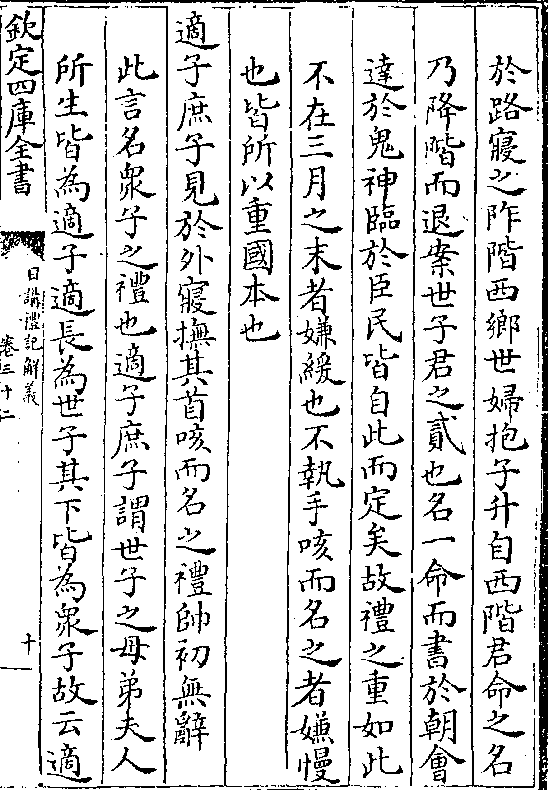 於路寢之阼階西鄉世婦抱子升自西階君命之名
乃降階而退案世子君之貳也名一命而書於朝會
達於鬼神臨於臣民皆自此而定矣故禮之重如此
不在三月之末者嫌緩也不執手咳而名之者嫌慢
也皆所以重國本也
適子庶子見於外寢撫其首咳而名之禮帥初無辭
此言名衆子之禮也適子庶子謂世子之母弟夫人
所生皆為適子適長為世子其下皆為衆子故云適
欽定四庫全書
日講禮記解義
卷三十二
十